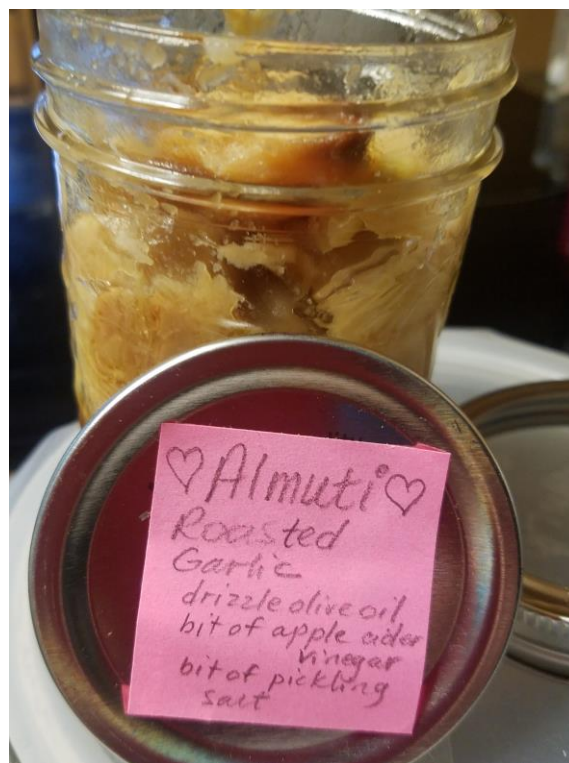 ♡Almuti♡
Roasted
Garlic
drizzle olive oil
bit of apple cider
vinegar
bit of pickling
salt